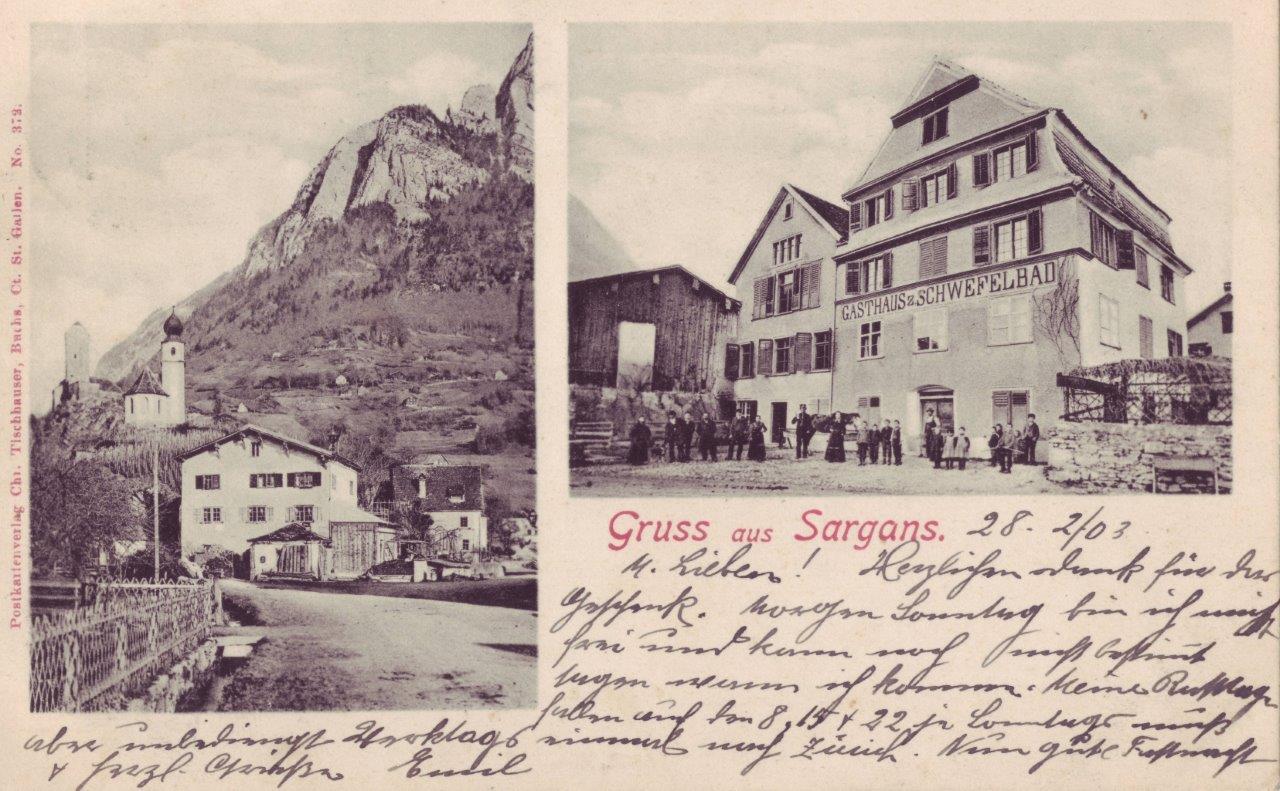 Postkartenverlag Chr. Tischhauser, Buchs, Ct. St. Gallen. No. 373.
GASTHAUS z. SCHWEFELBAD
Gruss aus Sargans. 28. 2/03
M. Lieben! Herzlichen dank für das
Geschenk. Morgen Sonntag bin ich nicht
frei und kann noch nicht bestimmt
sagen wann ich komme. Meine
fallen auf den 8, 15 & 22 je Sonntags muß
aber unbedingt Werktags einmal nach Zürich. Nun gute Fastnacht
& herzl. Grüße Emil